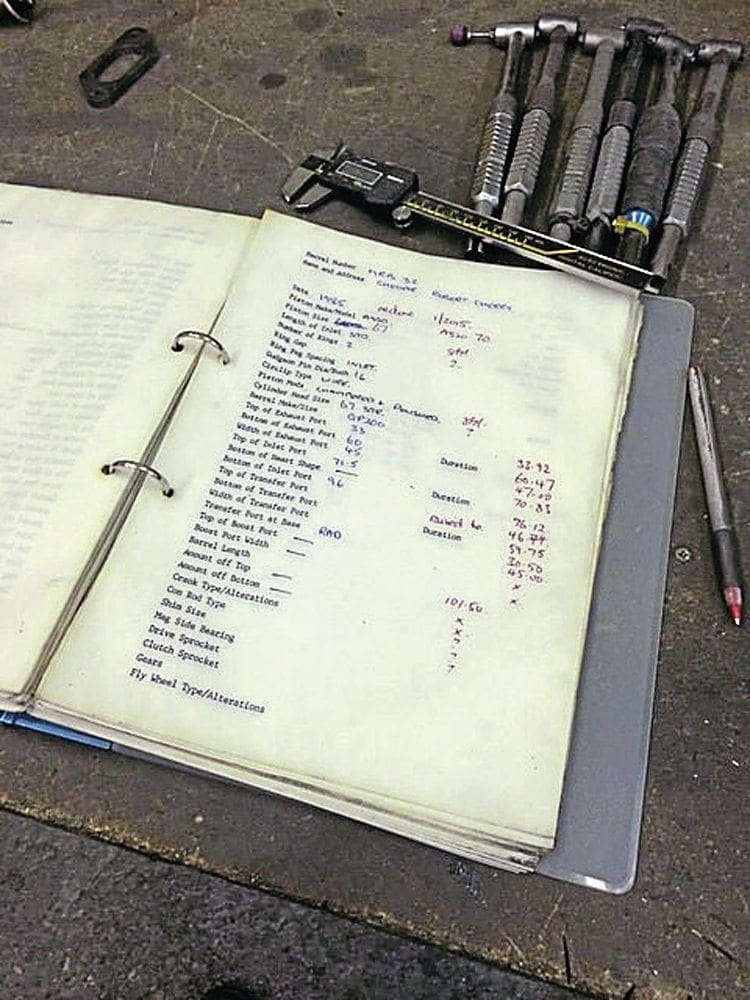 Barrel Number MEB 32
Name and Address CHROME ROBERT CHERRY
Date 1985 redone 1/2015.
Piston Make/Model ASSO. ASSO 70.
Piston Size 67
Length of Inlet STD. Std
Number of Rings 2 2.
Ring Gap
Ring Peg Spacing INLET.
Gudgeon Pin Dia/Bush 16
Circlip Type WIRE
Piston Mods CHAMFERED & POLISHED. Std.
Cylinder Head Size 67 STR. ?
Barrel Make/Size GP200
Top of Exhaust Port 33 33.92
Bottom of Exhaust Port 60 Duration 60.47
Width of Exhaust Port 45 47.00
Top of Inlet Port 71.5 70.83
Bottom of Smart Shape — Duration
Bottom of Inlet Port 96 76.12
Top of Transfer Port Raised to 46.74
Bottom of Transfer Port Duration 59.75
Width of Transfer Port 30.50
Transfer Port at Base 45.00
Top of Boost Port — RAD x
Boost Port Width — x.
Barrel Length 101.50
Amount off Top — x
Amount off Bottom — x.
Crank Type/Alterations ?
Con Rod Type ?
Shim Size
Mag Side Bearing
Drive Sprocket
Clutch Sprocket
Gears
Fly Wheel Type/Alterations
ELECTRONIC
DIGITAL CALIPER